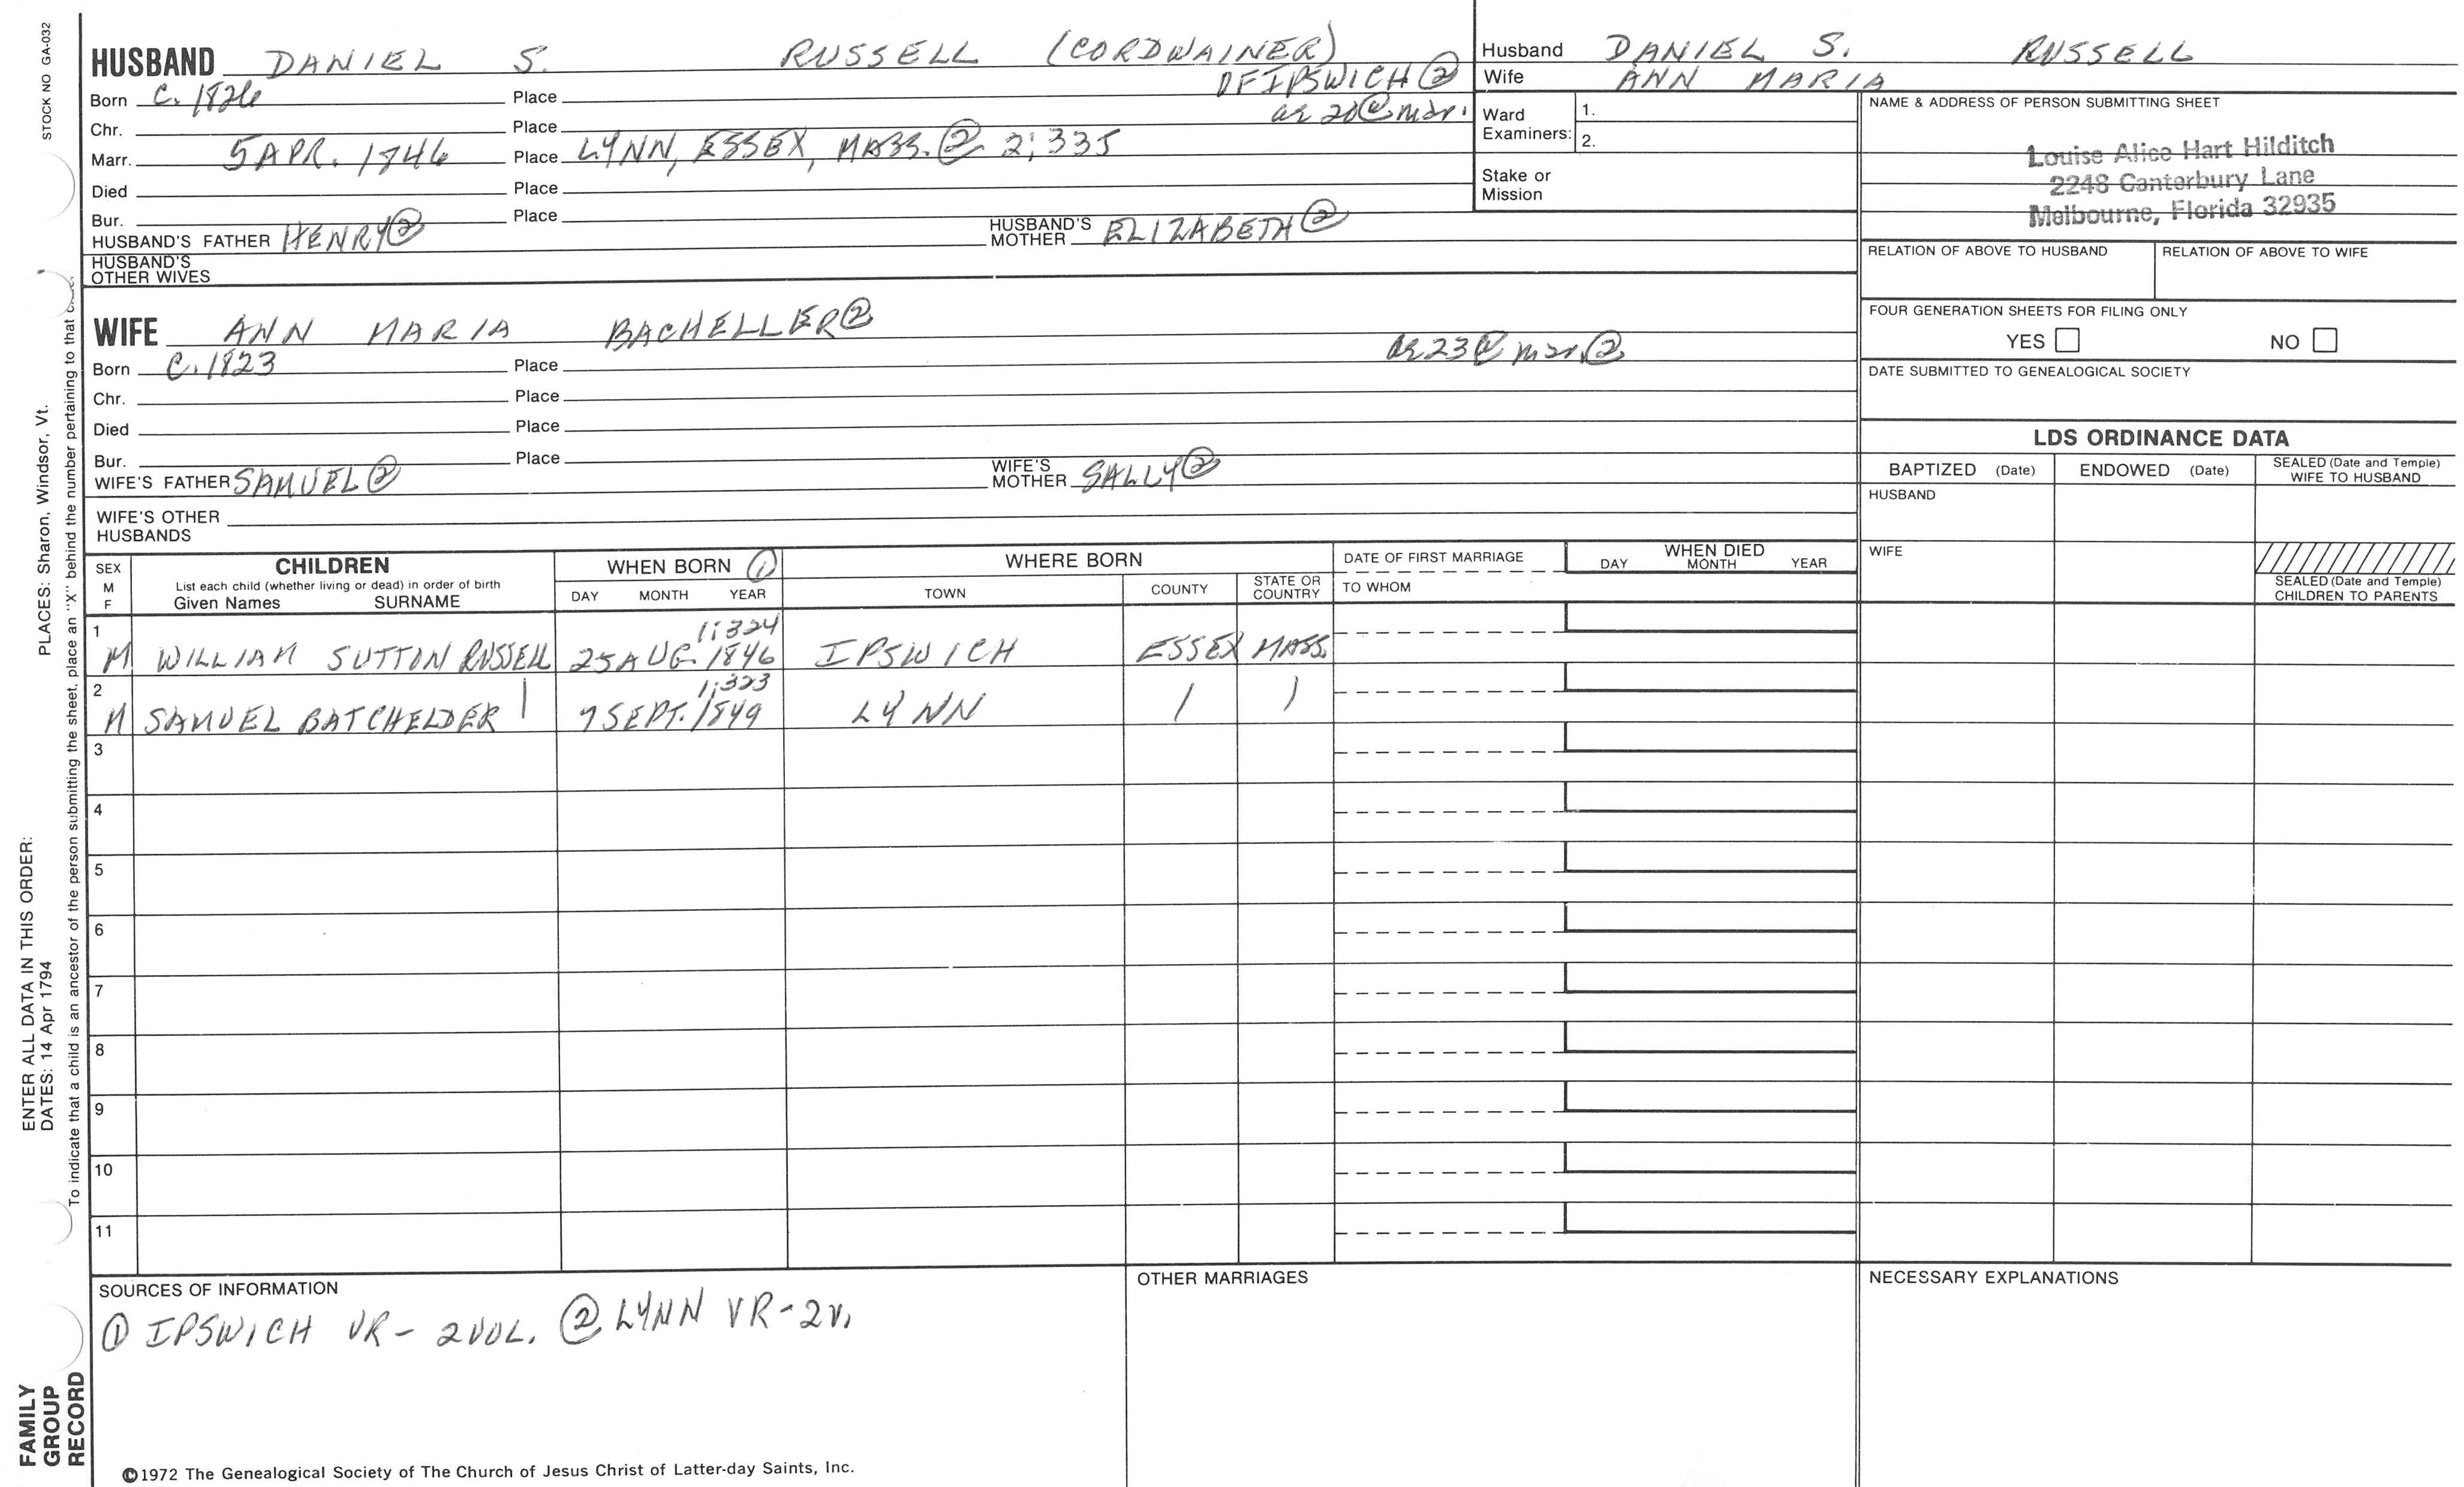 STOCK NO GA-032
HUSBAND DANIEL S. RUSSELL (CORDWAINER)
OF IPSWICH ②
Born C. 1826 Place ae 20 @ mar.
Chr. Place
Marr. 5 APR. 1846 Place LYNN, ESSEX, MASS. ② 2; 335
Died Place
Bur. Place
HUSBAND'S FATHER HENRY ② HUSBAND'S MOTHER ELIZABETH ②
HUSBAND'S OTHER WIVES
WIFE ANN MARIA BACHELLER ②
Born C. 1823 Place ae 23 @ mar. ②
Chr. Place
Died Place
Bur. Place
WIFE'S FATHER SAMUEL ② WIFE'S MOTHER SALLY ②
WIFE'S OTHER HUSBANDS
Husband DANIEL S. RUSSELL
Wife ANN MARIA
Ward Examiners: 1.
2.
Stake or Mission
NAME & ADDRESS OF PERSON SUBMITTING SHEET
Louise Alice Hart Hilditch
2248 Canterbury Lane
Melbourne, Florida 32935
RELATION OF ABOVE TO HUSBAND RELATION OF ABOVE TO WIFE
FOUR GENERATION SHEETS FOR FILING ONLY
YES NO
DATE SUBMITTED TO GENEALOGICAL SOCIETY
LDS ORDINANCE DATA
BAPTIZED (Date) ENDOWED (Date) SEALED (Date and Temple) WIFE TO HUSBAND
HUSBAND
WIFE
SEALED (Date and Temple) CHILDREN TO PARENTS
SEX M F CHILDREN WHEN BORN ① WHERE BORN DATE OF FIRST MARRIAGE WHEN DIED
List each child (whether living or dead) in order of birth
Given Names SURNAME DAY MONTH YEAR TOWN COUNTY STATE OR COUNTRY TO WHOM DAY MONTH YEAR
1 1; 324
M WILLIAM SUTTON RUSSELL 25 AUG. 1846 IPSWICH ESSEX MASS.
2 1; 323
M SAMUEL BATCHELDER | 7 SEPT. 1849 LYNN | |
3
4
5
6
7
8
9
10
11
SOURCES OF INFORMATION
① IPSWICH VR - 2 VOL. ② LYNN VR - 2 V.
OTHER MARRIAGES
NECESSARY EXPLANATIONS
©1972 The Genealogical Society of The Church of Jesus Christ of Latter-day Saints, Inc.
FAMILY GROUP RECORD
ENTER ALL DATA IN THIS ORDER:
DATES: 14 Apr 1794 PLACES: Sharon, Windsor, Vt.
To indicate that a child is an ancestor of the person submitting the sheet, place an "X" behind the number pertaining to that